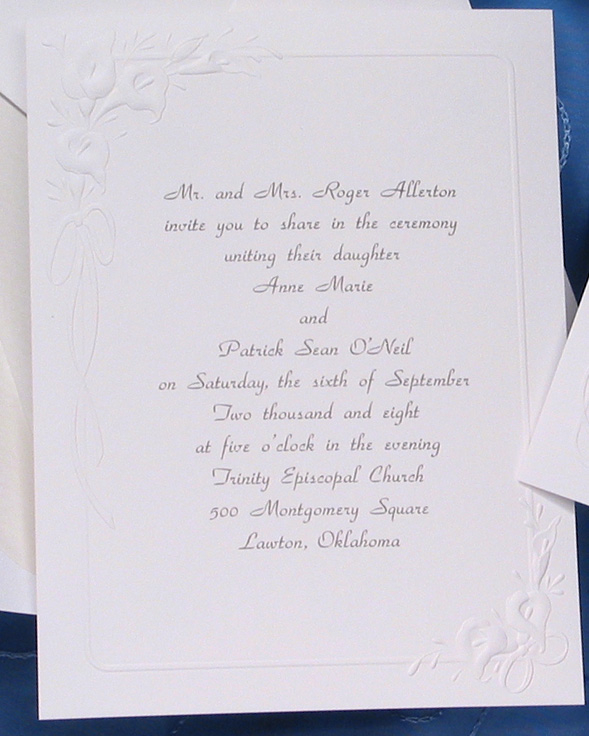 Mr. and Mrs. Roger Allerton
invite you to share in the ceremony
uniting their daughter
Anne Marie
and
Patrick Sean O'Neil
on Saturday, the sixth of September
Two thousand and eight
at five o'clock in the evening
Trinity Episcopal Church
500 Montgomery Square
Lawton, Oklahoma